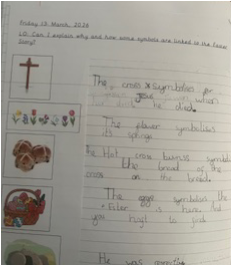 Friday 13 March, 2026
LO: Can I explain why and how some symbols are linked to the Easter
Story?
The cross symbolises for
Jesus where
he died.
The flower symbolises
its springe
the Hot cross bunss symbol
the bread of the
cross on the bread.
The eggs symbolises the
Ester is here, and
you to
He was